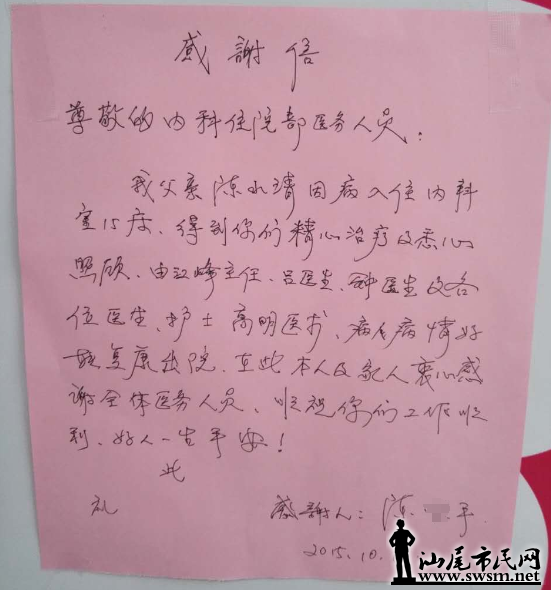 感謝信
尊敬的内科住院部医务人员：
我父亲陈水清因病入住内科
室15床、得到你们精心治疗及悉心
照顾、由江峰主任、吕医生、钟医生及各
位医生、护士高明医术、病人病情好
转复康出院、在此本人及家人衷心感
谢全体医务人员、顺祝你们工作顺
利、好人一生平安！
此
礼
感謝人：陈 平
2015.10.
汕尾市民网
www.swsm.net